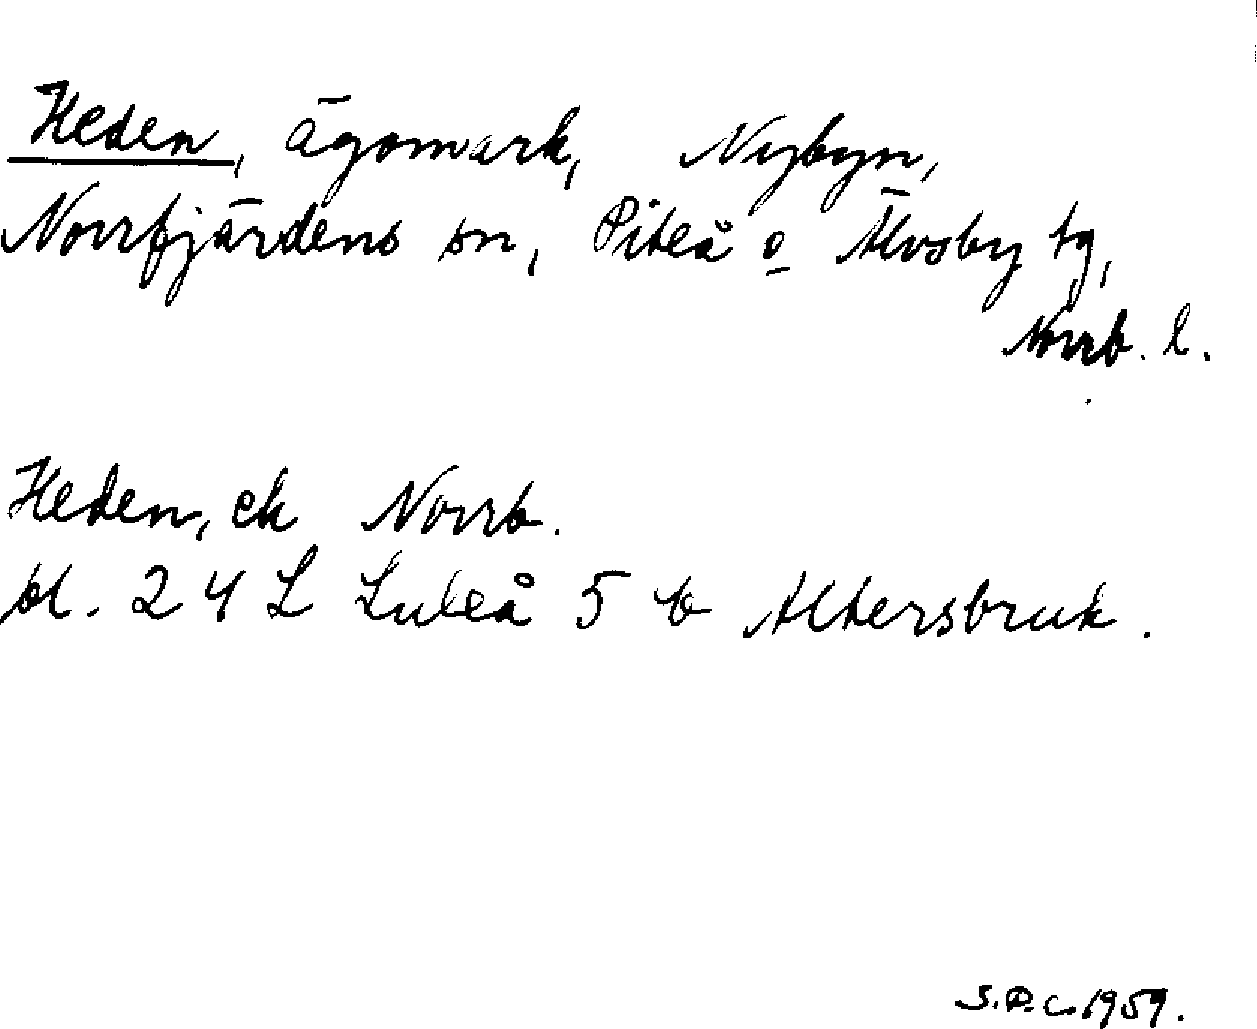 Heden, ägomark, Nybyn,
Norrfjärdens sn, Piteå o Älvsby tg,
Norrb. l.
Heden, ek Norrb.
bl. 24 L Luleå 5 b Altersbruk.
S.P.C. 1959.